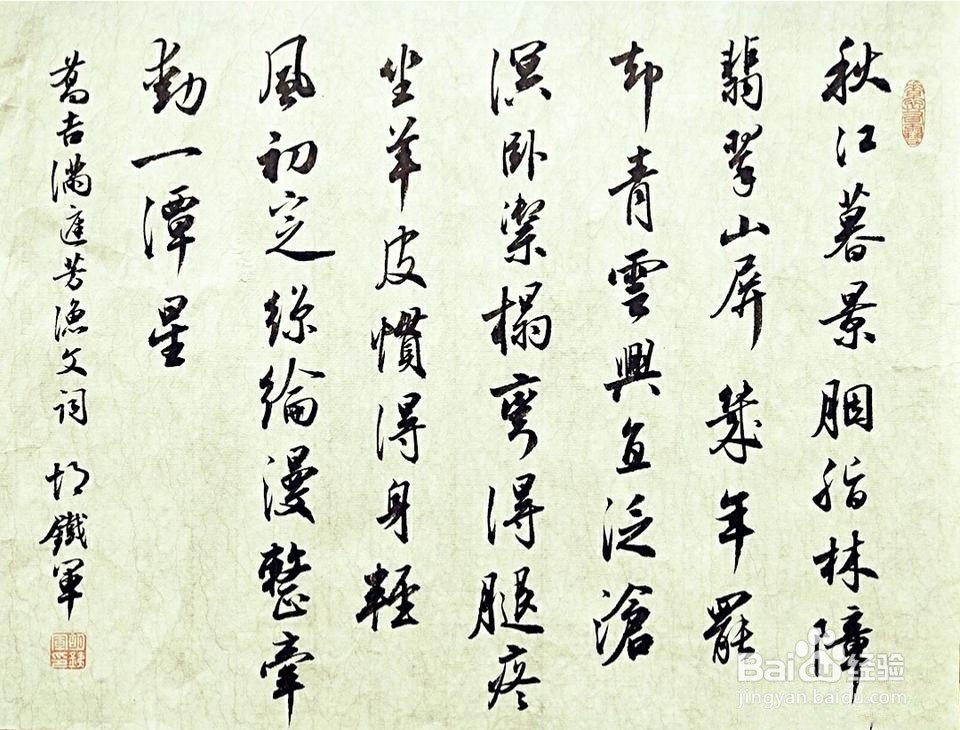 秋江暮景胭脂林障
翡翠山屏幾年罷
却青雲興直泛滄
溟卧潔榻彎得腿疼
坐羊皮慣得身輕
風初定絲綸漫整牽
動一潭星
葛吉滿庭芳漁父詞 胡鐵軍
Baidu经验
jingyan.baidu.com